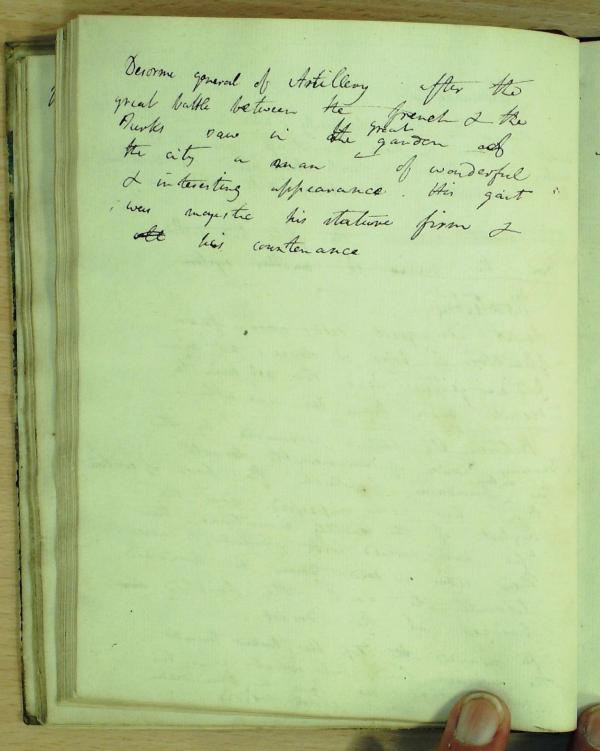 Desorme general of Artillery after the
great battle between the french & the
Turks saw in the great garden of
the city a man of wonderful
& interesting appearance. His gait
was majestic his stature firm &
his countenance